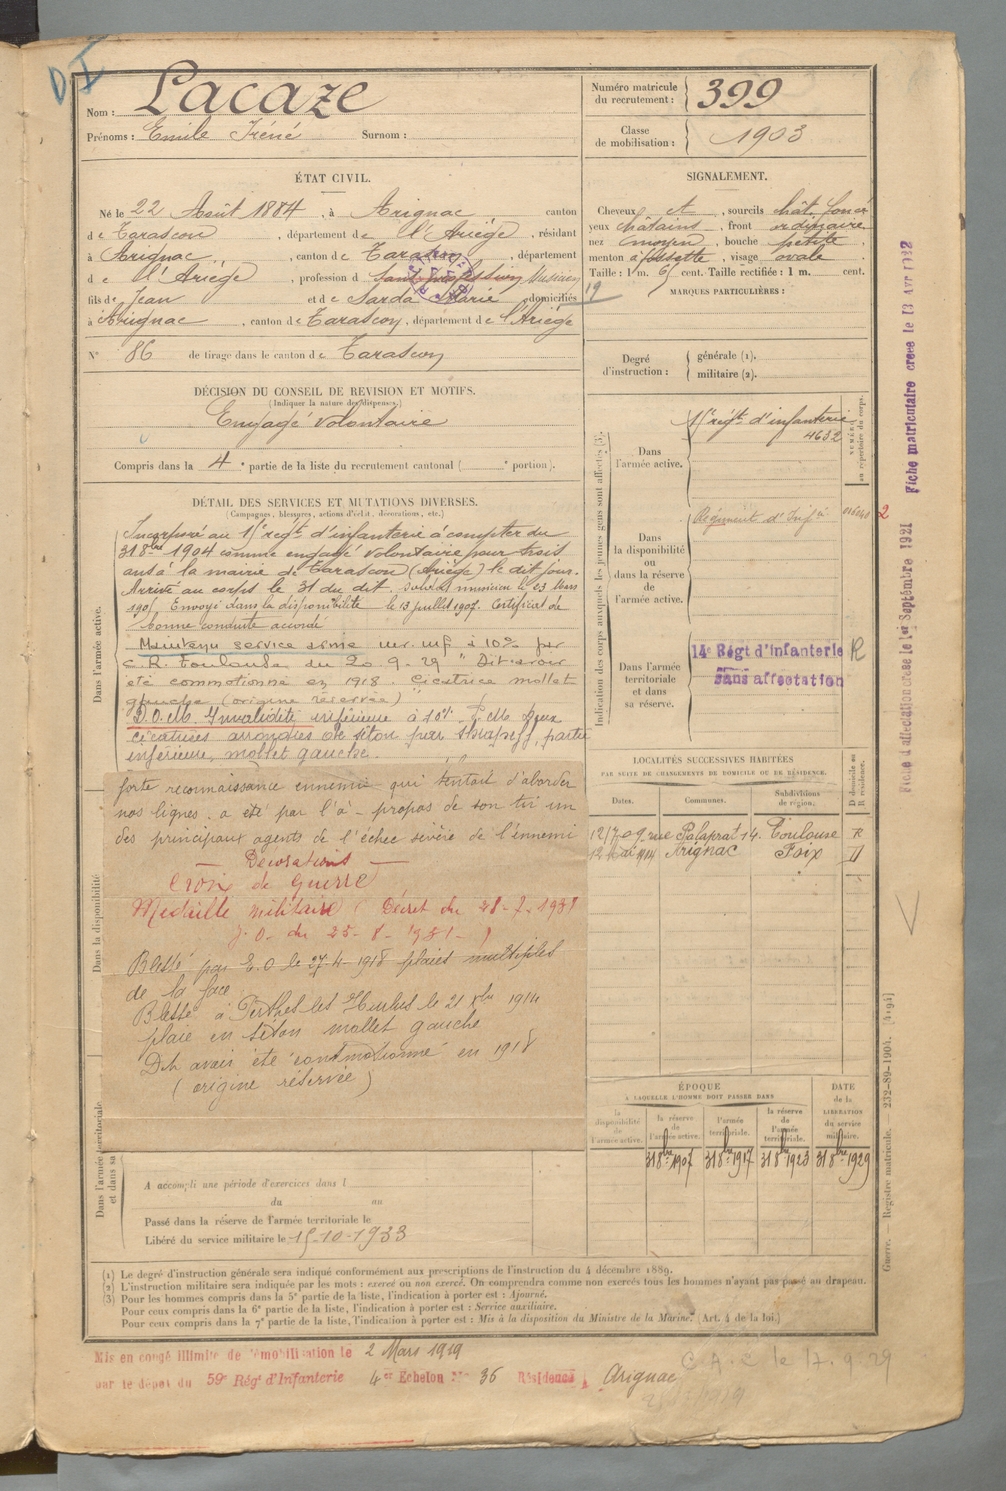 D I
Nom : Lacaze
Prénoms : Emile Iréné Surnom :
Numéro matricule du recrutement : 399
Classe de mobilisation : 1903
ÉTAT CIVIL.
Né le 22 Août 1884, à Arignac canton
de Tarascon, département de l'Ariège, résidant
à Arignac, canton de Tarascon, département
de l'Ariège, profession de Sans profession Musicien
fils de Jean et de Sarda Marie domiciliés
à Arignac, canton de Tarascon, département de l'Ariège
N° 86 de tirage dans le canton de Tarascon
SIGNALEMENT.
Cheveux et, sourcils chât. foncé
yeux châtains, front ordinaire
nez moyen, bouche petite
menton à fossette, visage ovale
Taille : 1 m. 6 cent. Taille rectifiée : 1 m. cent.
19
MARQUES PARTICULIÈRES :
Degré d'instruction : générale (1).
militaire (2).
DÉCISION DU CONSEIL DE REVISION ET MOTIFS.
(Indiquer la nature des dispenses.)
Engagé volontaire
Compris dans la 4e partie de la liste du recrutement cantonal ( e portion).
DÉTAIL DES SERVICES ET MUTATIONS DIVERSES.
(Campagnes, blessures, actions d'éclat, décorations, etc.)
Dans l'armée active.
Incorporé au régt d'infanterie à compter du
31 8bre 1904 comme engagé volontaire pour trois
ans à la mairie de Tarascon (Ariège) le dit jour.
Arrivé au corps le 31 du dit. Soldat musicien le 23 Mars
Envoyé dans la disponibilité le 13 juillet 1907. Certificat de
bonne conduite accordé
Maintenu service armé inf à 10% par
C.R. Toulouse du 20-9-29 " Dit avoir
été commotionné en 1918. Cicatrice mollet
gauche (origine réservée)
Invalidité inférieure à 10% deux
cicatrices arrondies de séton par shrapnell, partie
inférieure, mollet gauche.
Dans la disponibilité
forte reconnaissance ennemie qui tentait d'aborder
nos lignes. a été par l'à-propos de son tir un
des principaux agents de l'échec sévère de l'ennemi
Décorations
Croix de Guerre
Médaille militaire (Décret du 28-7-1931
J.O. du 25-8-1931-)
Blessé par E.O le 27-4-1918 plaies multiples
de la face
Blessé à Perthes les Hurlus le 21 Xbre 1914
plaie en séton mollet gauche
Dit avoir été commotionné en 1918
(origine réservée)
Dans l'armée territoriale
et dans sa
A accompli une période d'exercices dans l
du au
Passé dans la réserve de l'armée territoriale le
Libéré du service militaire le 15-10-1933
Indication des corps auxquels les jeunes gens sont affectés (3).
NUMÉRO au répertoire du corps.
Dans l'armée active.
régt d'infanterie
4632
Dans la disponibilité ou dans la réserve de l'armée active.
Régiment d'Infie
2
Dans l'armée territoriale et dans sa réserve.
14e Régt d'infanterie R
sans affectation
LOCALITÉS SUCCESSIVES HABITÉES
PAR SUITE DE CHANGEMENTS DE DOMICILE OU DE RÉSIDENCE.
Dates. Communes. Subdivisions de région. D domicile ou R résidence.
rue Palaprat 14. Toulouse R
12 Mai 1914 Arignac Foix D
ÉPOQUE
À LAQUELLE L'HOMME DOIT PASSER DANS
la disponibilité de l'armée active.
la réserve de l'armée active.
l'armée territoriale.
la réserve de l'armée territoriale.
DATE de la LIBÉRATION du service militaire.
31 8bre 1907 31 8bre 1917 31 8bre 1923 31 8bre 1929
(1) Le degré d'instruction générale sera indiqué conformément aux prescriptions de l'instruction du 4 décembre 1889.
(2) L'instruction militaire sera indiquée par les mots : exercé ou non exercé. On comprendra comme non exercés tous les hommes n'ayant pas passé au drapeau.
(3) Pour les hommes compris dans la 5e partie de la liste, l'indication à porter est : Ajourné.
Pour ceux compris dans la 6e partie de la liste, l'indication à porter est : Service auxiliaire.
Pour ceux compris dans la 7e partie de la liste, l'indication à porter est : Mis à la disposition du Ministre de la Marine. (Art. 4 de la loi.)
Mis en congé illimité de démobilisation le 2 Mars 1919
par le dépôt du 59e Régt d'Infanterie 4e Echelon N° 36 Résidence Arignac
C.A.C le 17.9.29
Fiche d'affectation créée le 1er Septembre 1921 Fiche matriculaire créée le 13 Avr 1932
Guerre. — Registre matricule. — 232-89-1904. [4194]